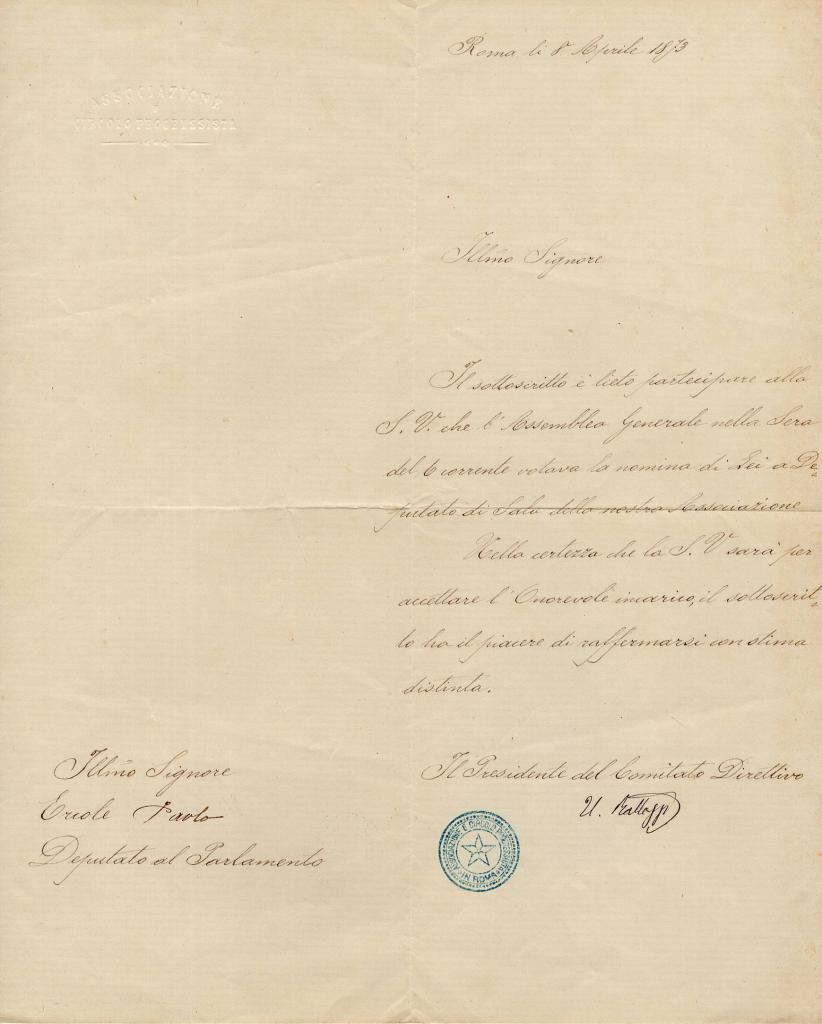 ASSOCIAZIONE
E
CIRCOLO PROGRESSISTA
Roma li 8 Aprile 1873
Illmo Signore
Il sottoscritto è lieto partecipare alla
S. V. che l'Assemblea Generale nella Sera
del 6 corrente votava la nomina di Lei a De=
putato di Sala della nostra Associazione
Nella certezza che la S. V sarà per
accettare l'Onorevole incarico, il sottoscrit=
to ha il piacere di raffermarsi con stima
distinta.
Il Presidente del Comitato Direttivo
U. Rattazzi
Illmo Signore
Ercole Paolo
Deputato al Parlamento
ASSOCIAZIONE E CIRCOLO PROGRESSISTA
IN ROMA